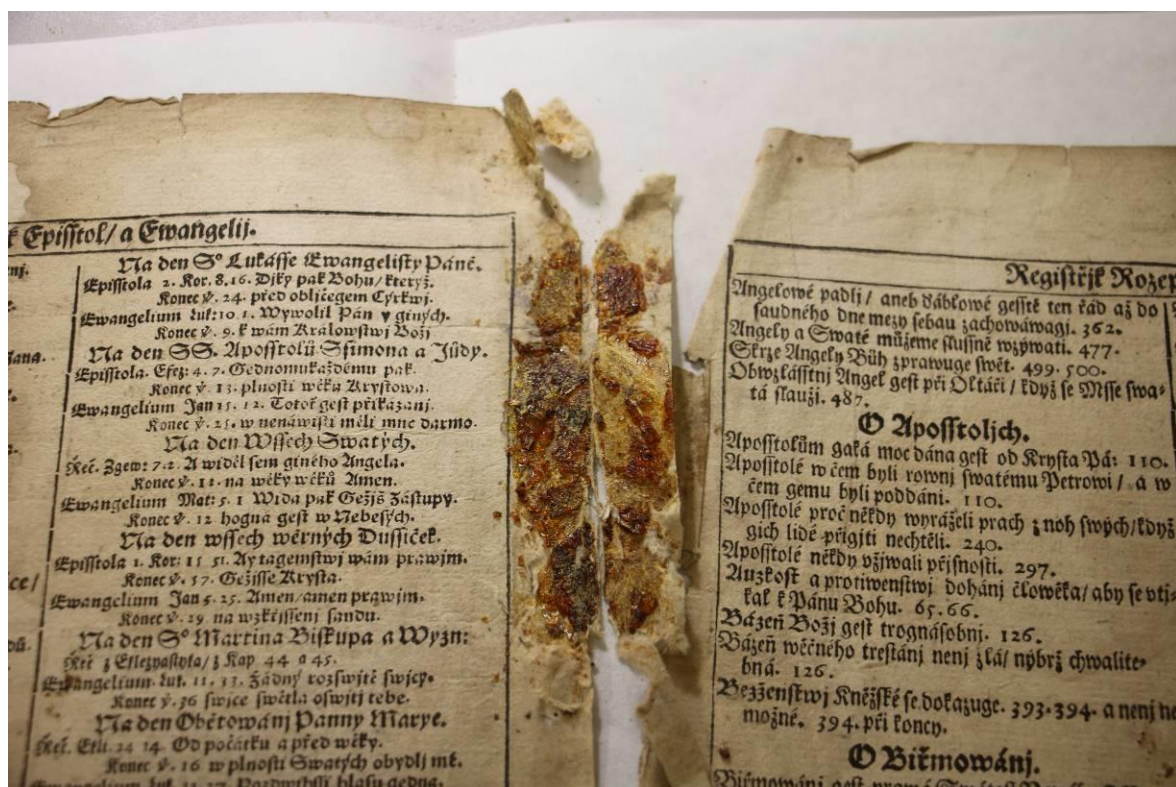 k Episstol/ a Ewangelij.
Na den S° Lukásse Ewangelisty Páně.
Episstola 2. Kor. 8. 16. Díky pak Bohu/ kterýž.
Konec ꝟ. 24. před obljčegem Cýrkwj.
Ewangelium Luk: 10. 1. Wywolil Pán y giných.
Konec ꝟ. 9. k wám Králowstwj Božj
Na den SS. Aposstolů Ssimona a Júdy.
Episstola. Efez: 4. 7. Gednomukaždému pak.
Konec ꝟ. 13. plnosti wěku Krystowa.
Ewangelium Jan 15. 12. Totoť gest přikázanj.
Konec ꝟ. 25. w nenáwisti měli mne darmo.
Na den Wssech Swatých.
Řeč. Zgew: 7. 2. A widěl sem giného Angela.
Konec ꝟ. 12. na wěky wěků Amen.
Ewangelium Mat: 5. 1 Wida pak Gežjš Zástupy.
Konec ꝟ. 12 hogná gest w Nebesých.
Na den wssech wěrných Dussiček.
Episstola 1. Kor: 15 51. Ay tagemstwj wám prawjm.
Konec ꝟ. 57. Gežjsse Krysta.
Ewangelium Jan 5. 25. Amen/ amen prawjm.
Konec ꝟ. 29 na wzkřjssenj saudu.
Na den S° Martina Biskupa a Wyzn:
Řeč z Eklezyastyka/ z Kap 44 a 45.
Ewangelium. Luk. 11. 33. Žádný rozswjtě swjcy.
Konec ꝟ. 36 swjce swětla oswjtj tebe.
Na den Obětowánj Panny Marye.
Řeč. Ekli. 24 14. Od počátku a před wěky.
Konec ꝟ. 16 w plnosti Swatých obydlj mé.
Registřjk Rozep
Angelowé padlj/ aneb ďáblowé gesstě ten řád až do
saudného dne mezy sebau zachowáwagj. 362.
Angely a Swaté můžeme slussně wzýwati. 477.
Skrze Angely Bůh zprawuge swět. 499. 500.
Obwzlásstnj Angel gest při Oltáři/ když se Msse swa-
tá slaužj. 487.
O Apossstoljch.
Apossstolům gaká moc dána gest od Krysta Pá: 110.
Apossstolé w čem byli rownj swatému Petrowi/ a w
čem gemu byli poddáni. 110.
Apossstolé proč někdy wyráželi prach z noh swých/ když
gich lidé přigjti nechtěli. 240.
Apossstolé někdy vžjwali přjsnosti. 297.
Auzkost a protiwenstwj dohánj člowěka/ aby se vtj-
kal k Pánu Bohu. 65. 66.
Bázeň Božj gest trognásobnj. 126.
Bázeň wěčného trestánj nenj zlá/ nýbrž chwalite-
bná. 126.
Bezženstwj Kněžské se dokazuge. 393. 394. a nenj ne
možné. 394. při koncy.
O Biřmowánj.